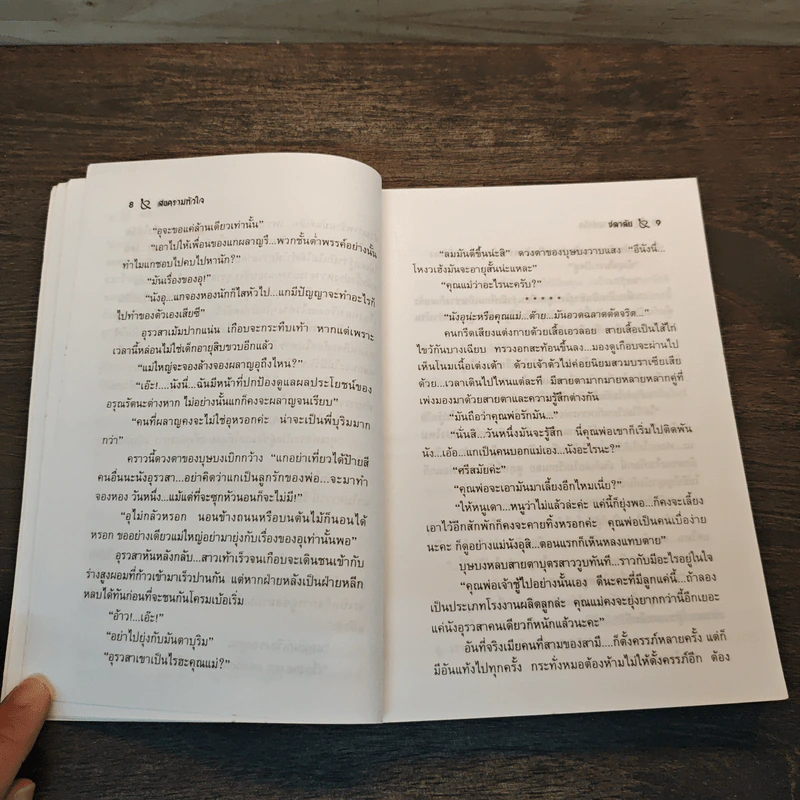 8 สงครามหัวใจ
"อุจะขอแค่ล้านเดียวเท่านั้น"
"เอาไปให้เพื่อนของแกผลาญรึ...พวกชั้นต่ำพรรค์อย่างนั้น
ทำไมแกชอบไปคบไปหานัก?"
"มันเรื่องของอุ!"
"นังอุ...แกจองหองนักก็ไสหัวไป...แกมีปัญญาจะทำอะไรก็
ไปทำของตัวเองเสียซี"
อุรวสาเม้มปากแน่น เกือบจะกระทืบเท้า หากแต่เพราะ
เวลานี้หล่อนไม่ใช่เด็กอายุสิบขวบอีกแล้ว
"แม่ใหญ่จะจองล้างจองผลาญอุถึงไหน?"
"เอ๊ะ!....นังนี่...ฉันมีหน้าที่ปกป้องดูแลผลประโยชน์ของ
อรุณรัตนะต่างหาก ไม่อย่างนั้นแกก็คงจะผลาญจนเรียบ"
"คนที่ผลาญคงจะไม่ใช่อุหรอกค่ะ น่าจะเป็นพี่บุริมมาก
กว่า"
คราวนี้ดวงตาของบุษบงเบิกกว้าง "แกอย่าเที่ยวได้ป้ายสี
คนอื่นนะนังอุรวสา...อย่าคิดว่าแกเป็นลูกรักของพ่อ...จะมาทำ
จองหอง วันหนึ่ง...แม้แต่ที่จะซุกหัวนอนก็จะไม่มี!"
"อุไม่กลัวหรอก นอนข้างถนนหรือบนต้นไม้ก็นอนได้
หรอก ขออย่างเดียวแม่ใหญ่อย่ามายุ่งกับเรื่องของอุเท่านั้นพอ"
อุรวสาหันหลังกลับ...สาวเท้าเร็วจนเกือบจะเดินชนเข้ากับ
ร่างสูงผอมที่ก้าวเข้ามาเร็วปานกัน แต่หากฝ่ายหลังเป็นฝ่ายหลีก
หลบได้ทันก่อนที่จะชนกันโครมเบ้อเริ่ม
"อ้าว!...เอ๊ะ!"
"อย่าไปยุ่งกับมันตาบุริม"
"อุรวสาเขาเป็นไรฮะคุณแม่?"
ชลาลัย 9
"ลมมันดีขึ้นน่ะสิ" ดวงตาของบุษบงวาบแสง "อีนังนี่...
โหงวเฮ้งมันจะอายุสั้นน่ะแหละ"
"คุณแม่ว่าอะไรนะครับ?"
* * * * *
"นังอุน่ะหรือคุณแม่...ต๊าย...มันอวดฉลาดดัดจริต..."
คนกรีดเสียงแต่งกายด้วยเสื้อเอวลอย สายเสื้อเป็นไส้ไก่
ไขว้กันบางเฉียบ ทรวงอกสะท้อนขึ้นลง...มองดูเกือบจะผ่านไป
เห็นโนมเนื้อเต่งเต้า ด้วยเจ้าตัวไม่ค่อยนิยมสวมบราเซียเสีย
ด้วย...เวลาเดินไปไหนแต่ละที มีสายตามากมายหลายหลากคู่ที่
เพ่งมองมาด้วยสายตาและความรู้สึกต่างกัน
"มันถือว่าคุณพ่อรักมัน..."
"นั่นสิ...วันหนึ่งมันจะรู้สึก นี่คุณพ่อเขาก็เริ่มไปติดพัน
นัง...เอ้อ...แกเป็นคนบอกแม่เอง...นังอะไรนะ?"
"ศรีสมัยค่ะ"
"คุณพ่อจะเอามันมาเลี้ยงอีกไหมเนี่ย?"
"ให้หนูเดา...หนูว่าไม่แล้วล่ะค่ะ แค่นี้ก็ยุ่งพอ...ก็คงจะเลี้ยง
เอาไว้อีกสักพักก็คงจะคายทิ้งหรอกค่ะ คุณพ่อเป็นคนเบื่อง่าย
นะคะ ก็ดูอย่างแม่นังอุสิ...ตอนแรกก็เห็นหลงแทบตาย"
บุษบงหลบสายตาบุตรสาววูบทันที...ราวกับมีอะไรอยู่ในใจ
"คุณพ่อเจ้าชู้ไปอย่างนั้นเอง ดีนะคะที่มีลูกแค่นี้...ถ้าลอง
เป็นประเภทโรงงานผลิตลูกล่ะ คุณแม่คงจะยุ่งยากกว่านี้อีกเยอะ
แค่นังอุรวสาคนเดียวก็หนักแล้วนะคะ"
อันที่จริงเมียคนที่สามของสามี....ก็ตั้งครรภ์หลายครั้ง แต่ก็
มีอันแท้งไปทุกครั้ง กระทั่งหมอต้องห้ามไม่ให้ตั้งครรภ์อีก ต้อง